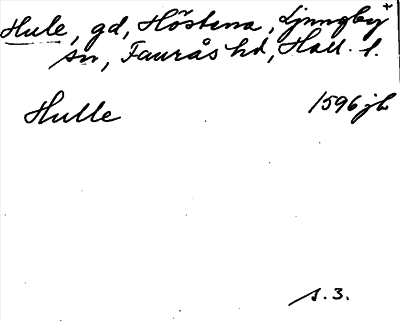 Hule, gd, Höstena, Ljungby +
sn, Faurås hd, Hall. l.
Hulle 1596 jb
s. 3.